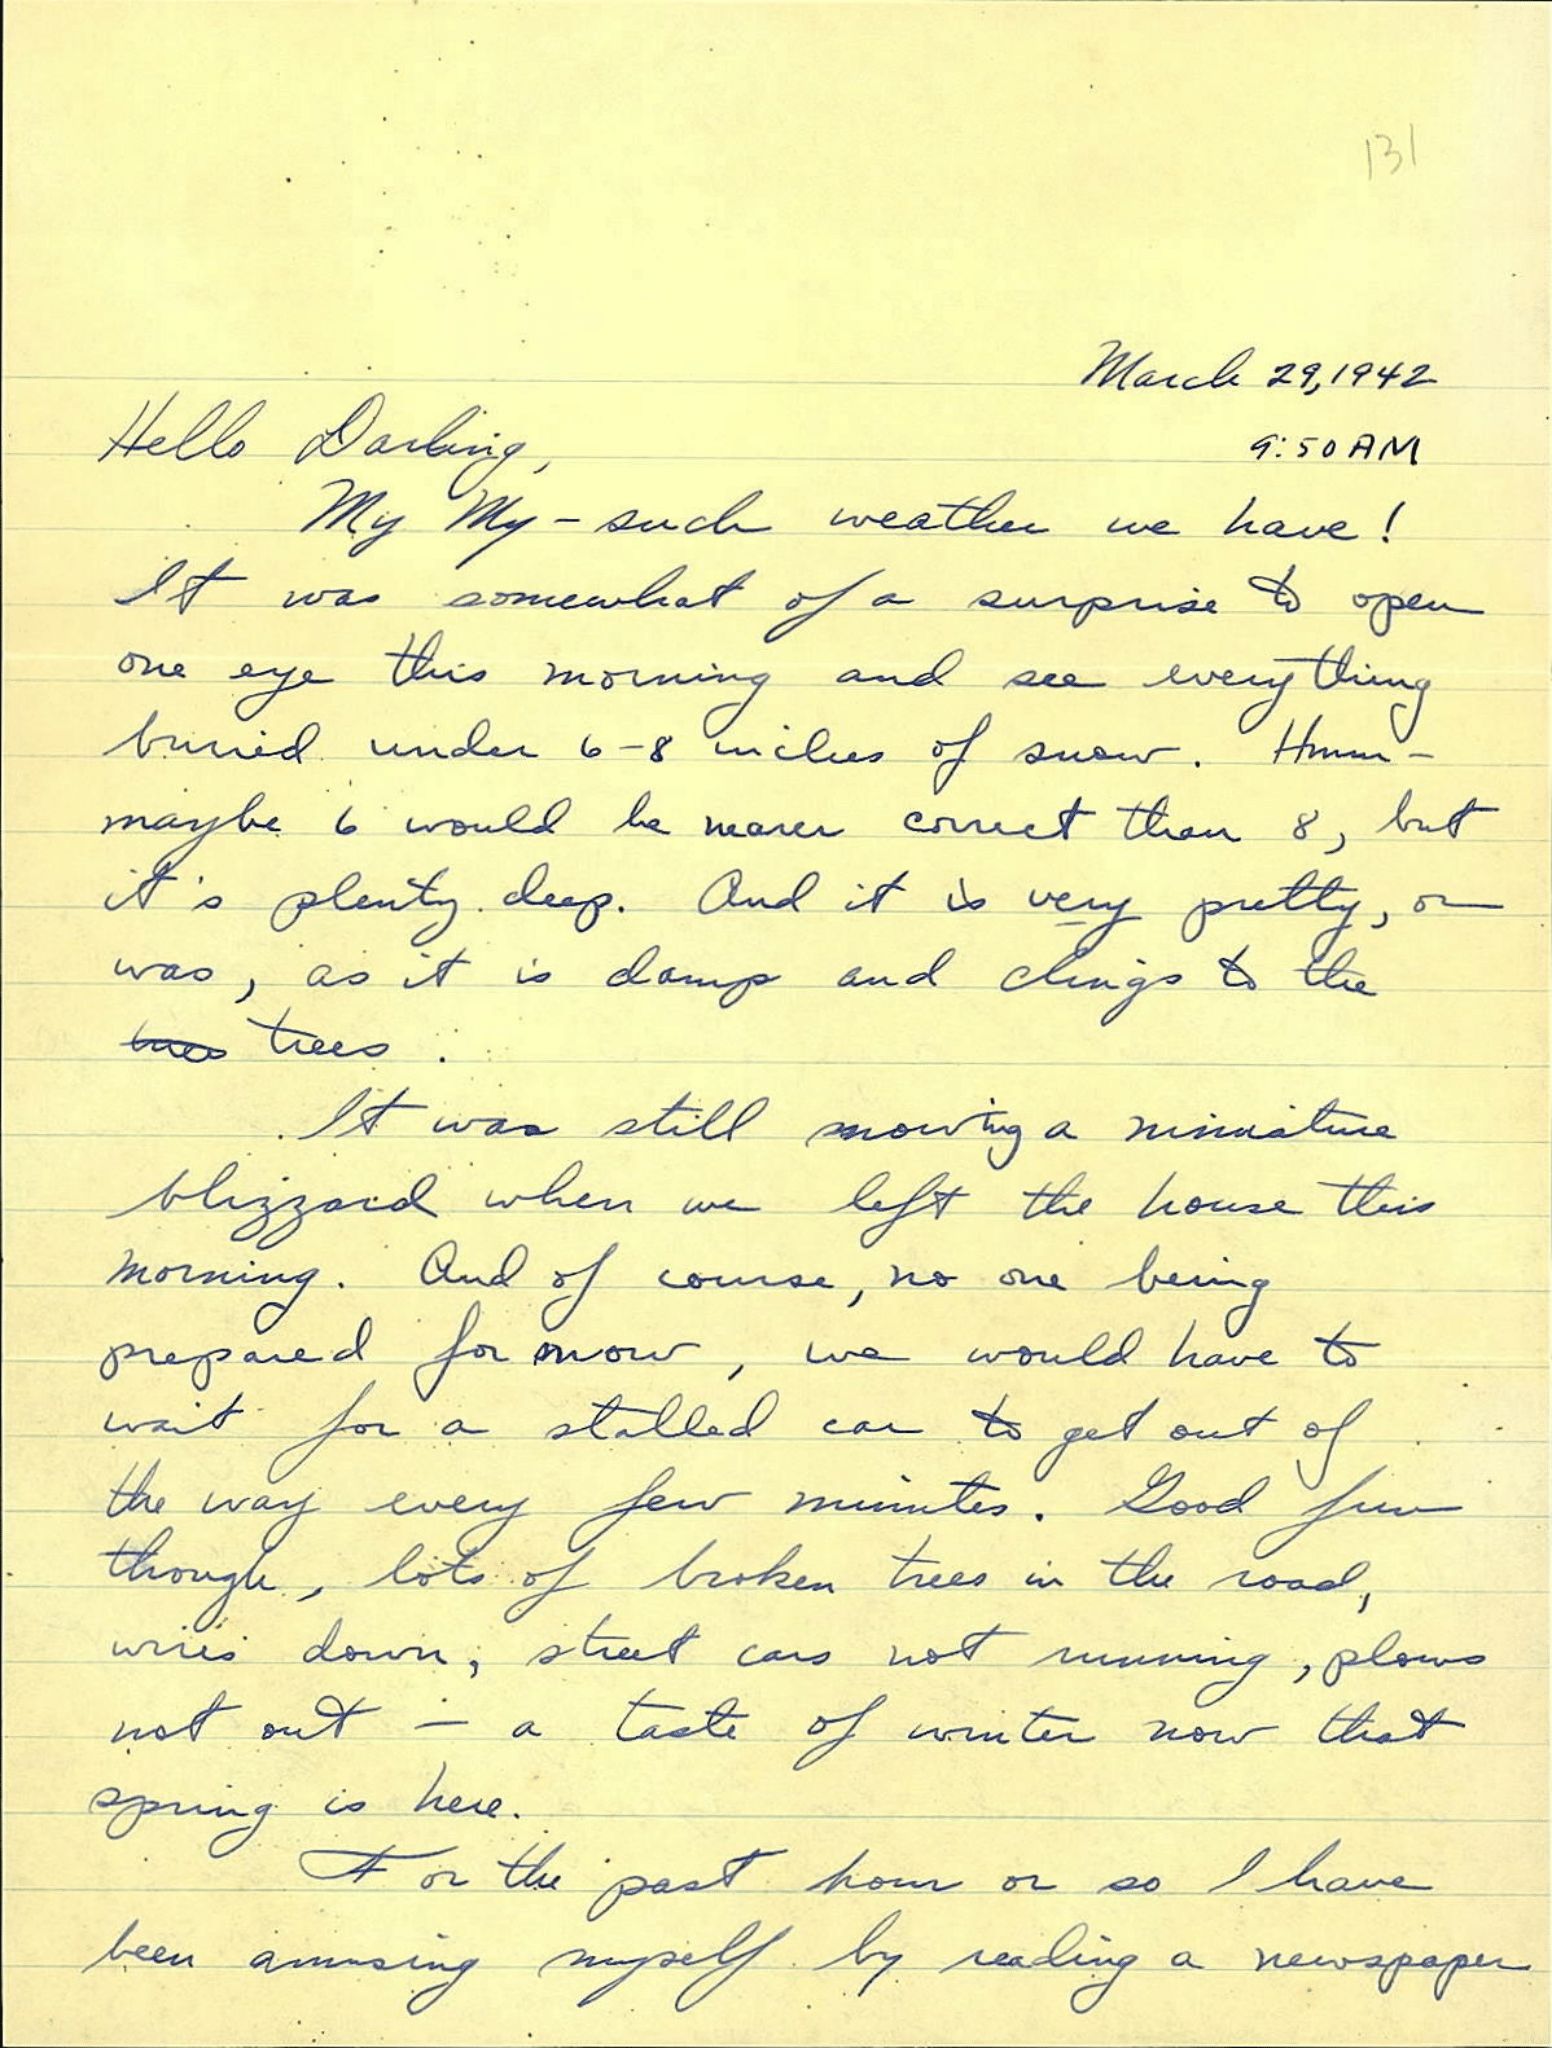 131
March 29, 1942
9:50 AM
Hello Darling,
My My - such weather we have!
It was somewhat of a surprise to open
one eye this morning and see everything
buried under 6-8 inches of snow. Hmm -
maybe 6 would be nearer correct than 8, but
it's plenty deep. And it is very pretty, or
was, as it is damp and clings to the
trees trees.
It was still snowing a miniature
blizzard when we left the house this
morning. And of course, no one being
prepared for snow, we would have to
wait for a stalled car to get out of
the way every few minutes. Good fun
though, lots of broken trees in the road,
wires down, street cars not running, plows
not out - a taste of winter now that
spring is here.
For the past hour or so I have
been amusing myself by reading a newspaper